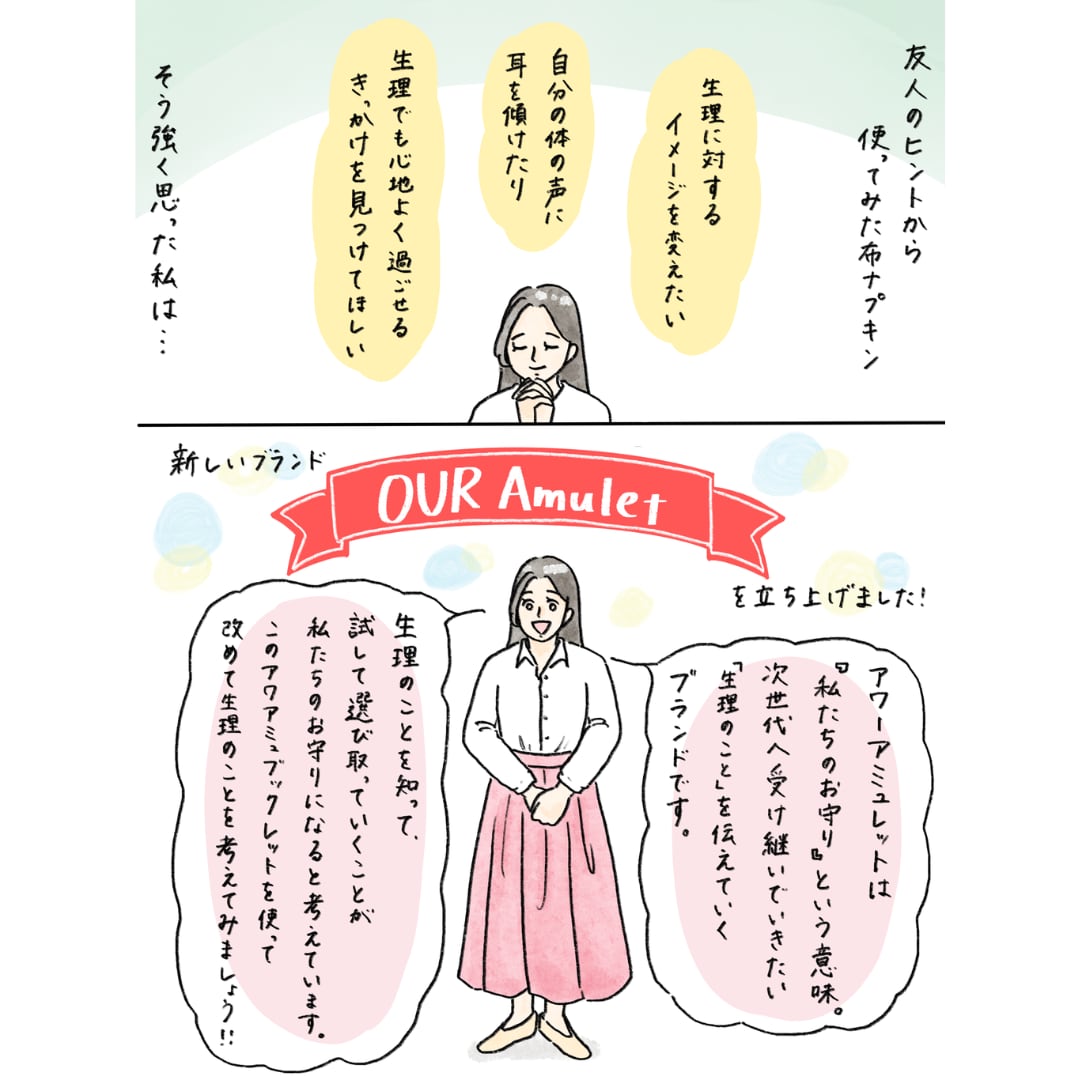 友人のヒントから
使ってみた布ナプキン
生理に対する
イメージを変えたい
自分の体の声に
耳を傾けたり
生理でも心地よく過ごせる
きっかけを見つけてほしい
そう強く思った私は…
新しいブランド
OUR Amulet
を立ち上げました!
アワーアミュレットは
『私たちのお守り』という意味。
次世代へ受け継いでいきたい
「生理のこと」を伝えていく
ブランドです。
生理のことを知って、
試して選び取っていくことが
私たちのお守りになると考えています。
このアワアミュブックレットを使って
改めて生理のことを考えてみましょう!!